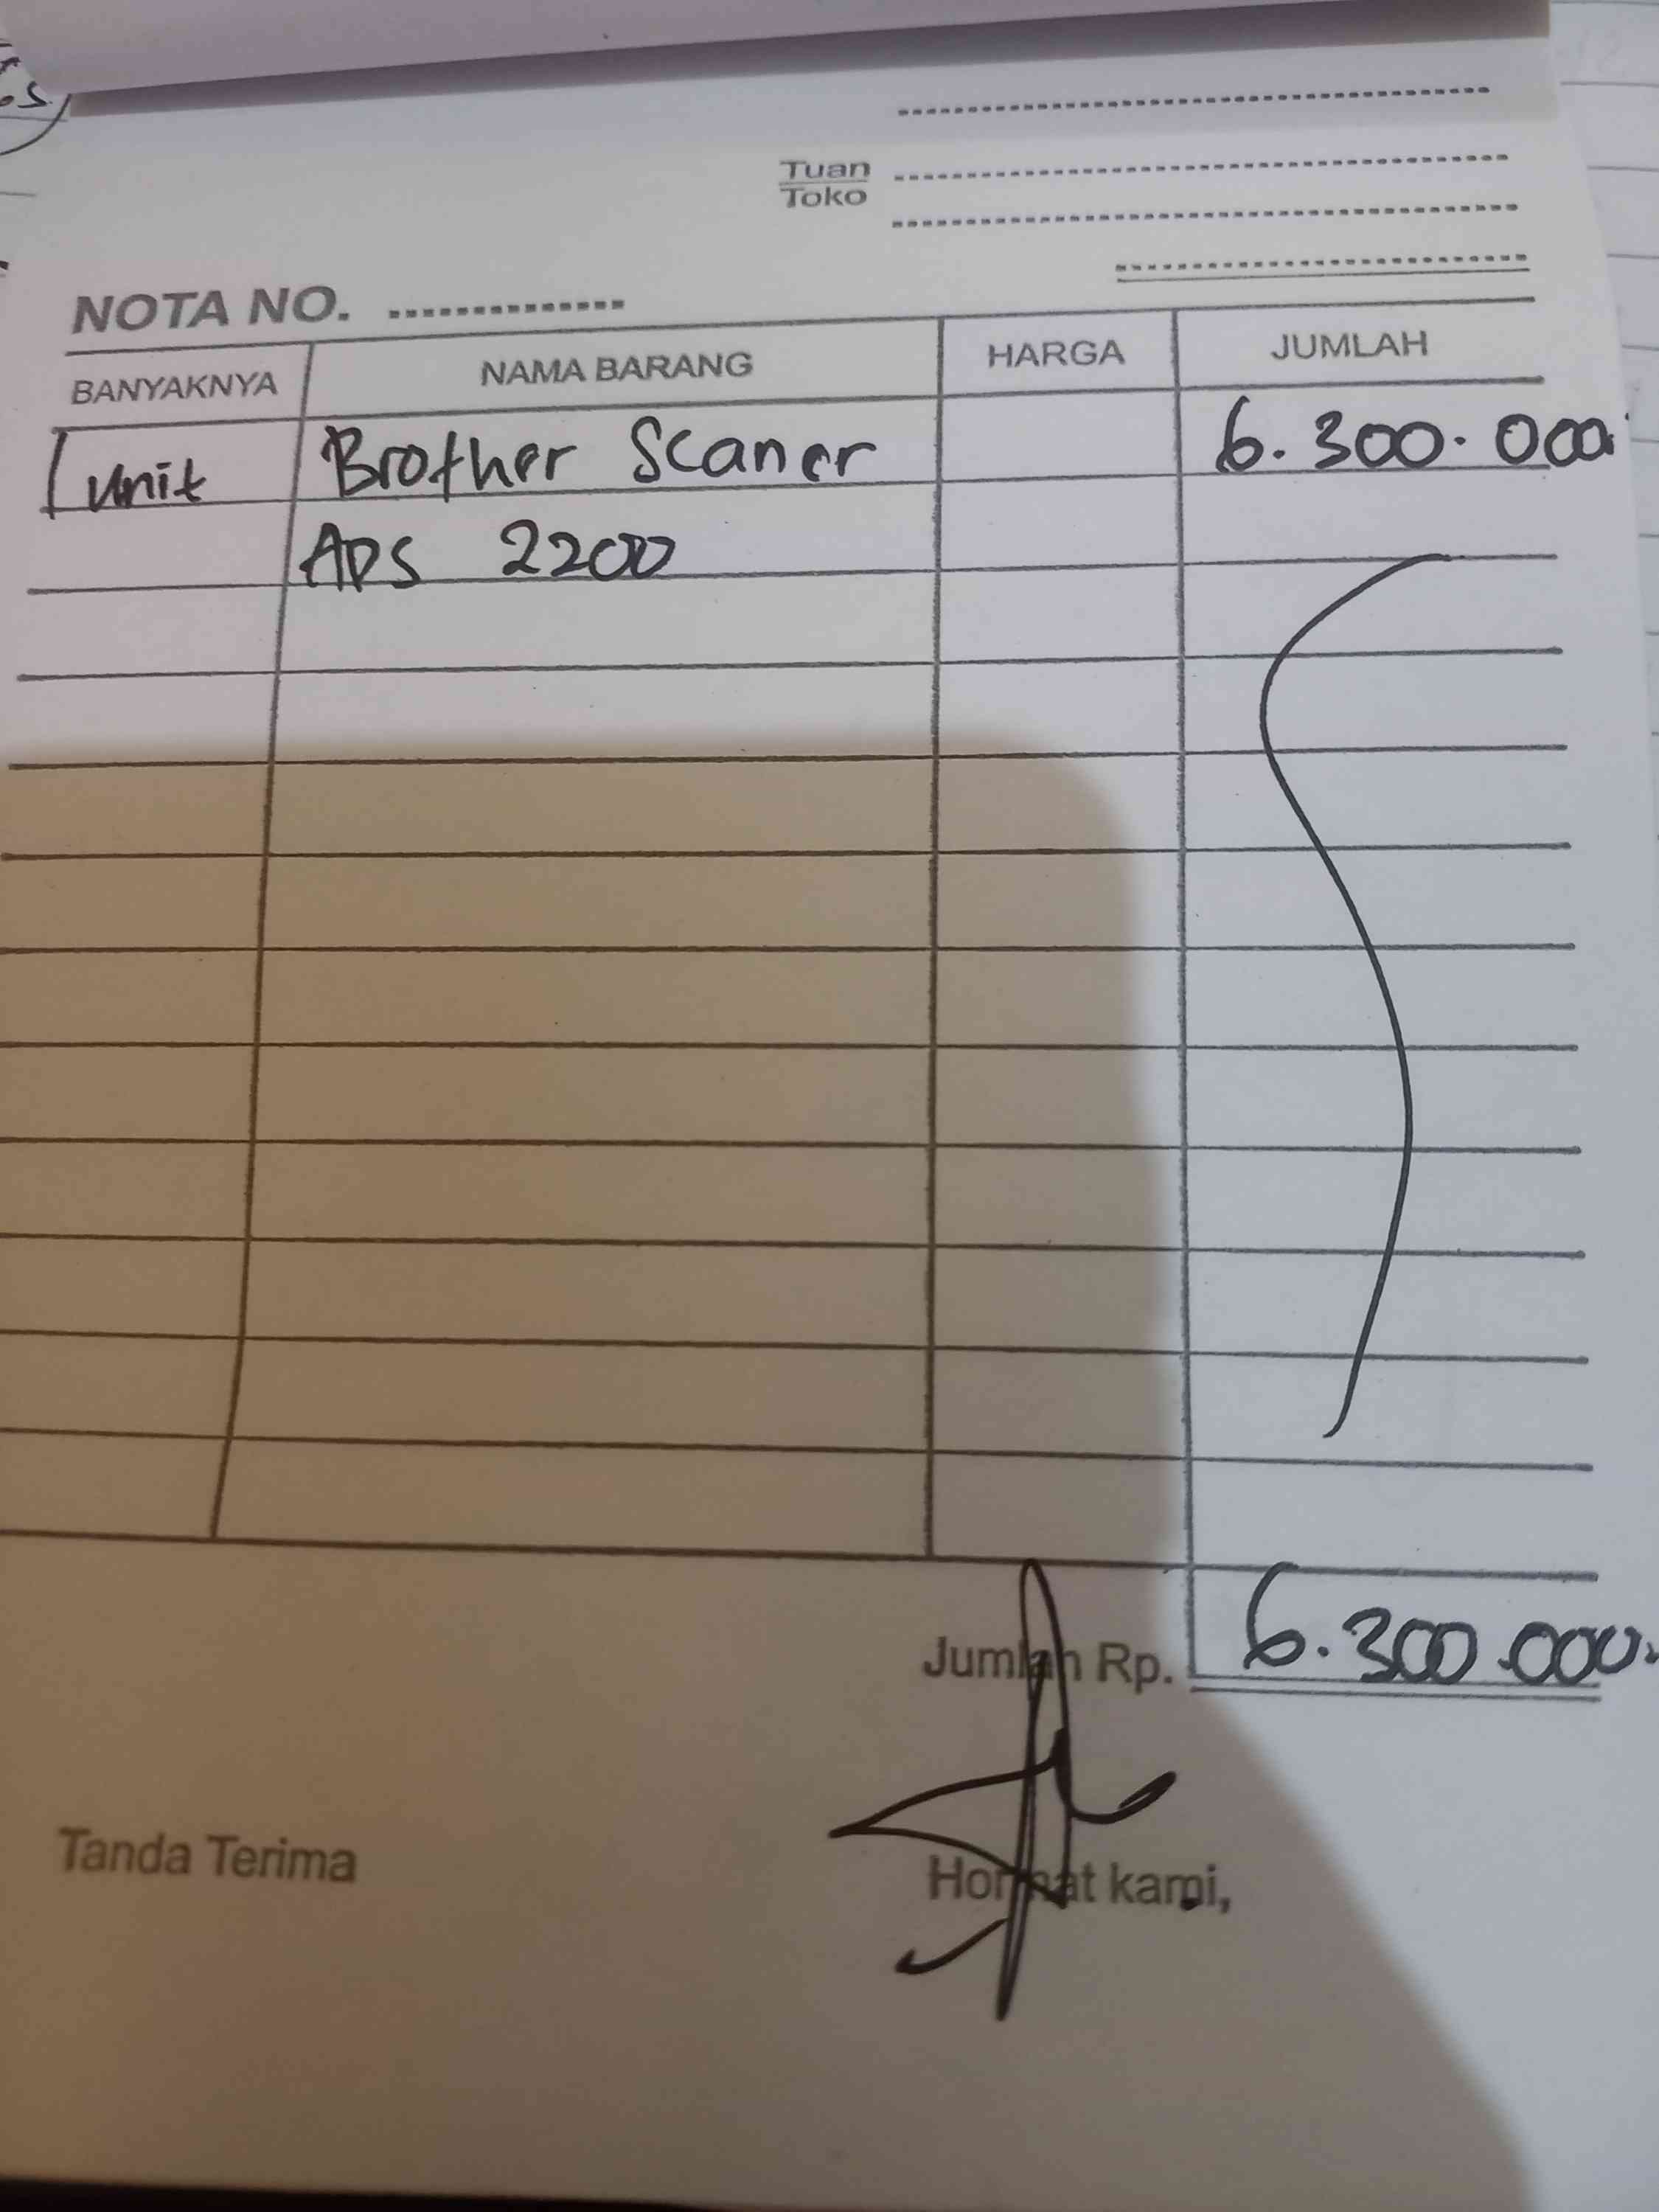 Tuan
Toko
NOTA NO. ..............
BANYAKNYA NAMA BARANG HARGA JUMLAH
1 unit Brother Scaner 6.300.000
ADS 2200
Jumlah Rp. 6.300.000
Tanda Terima
Hormat kami,